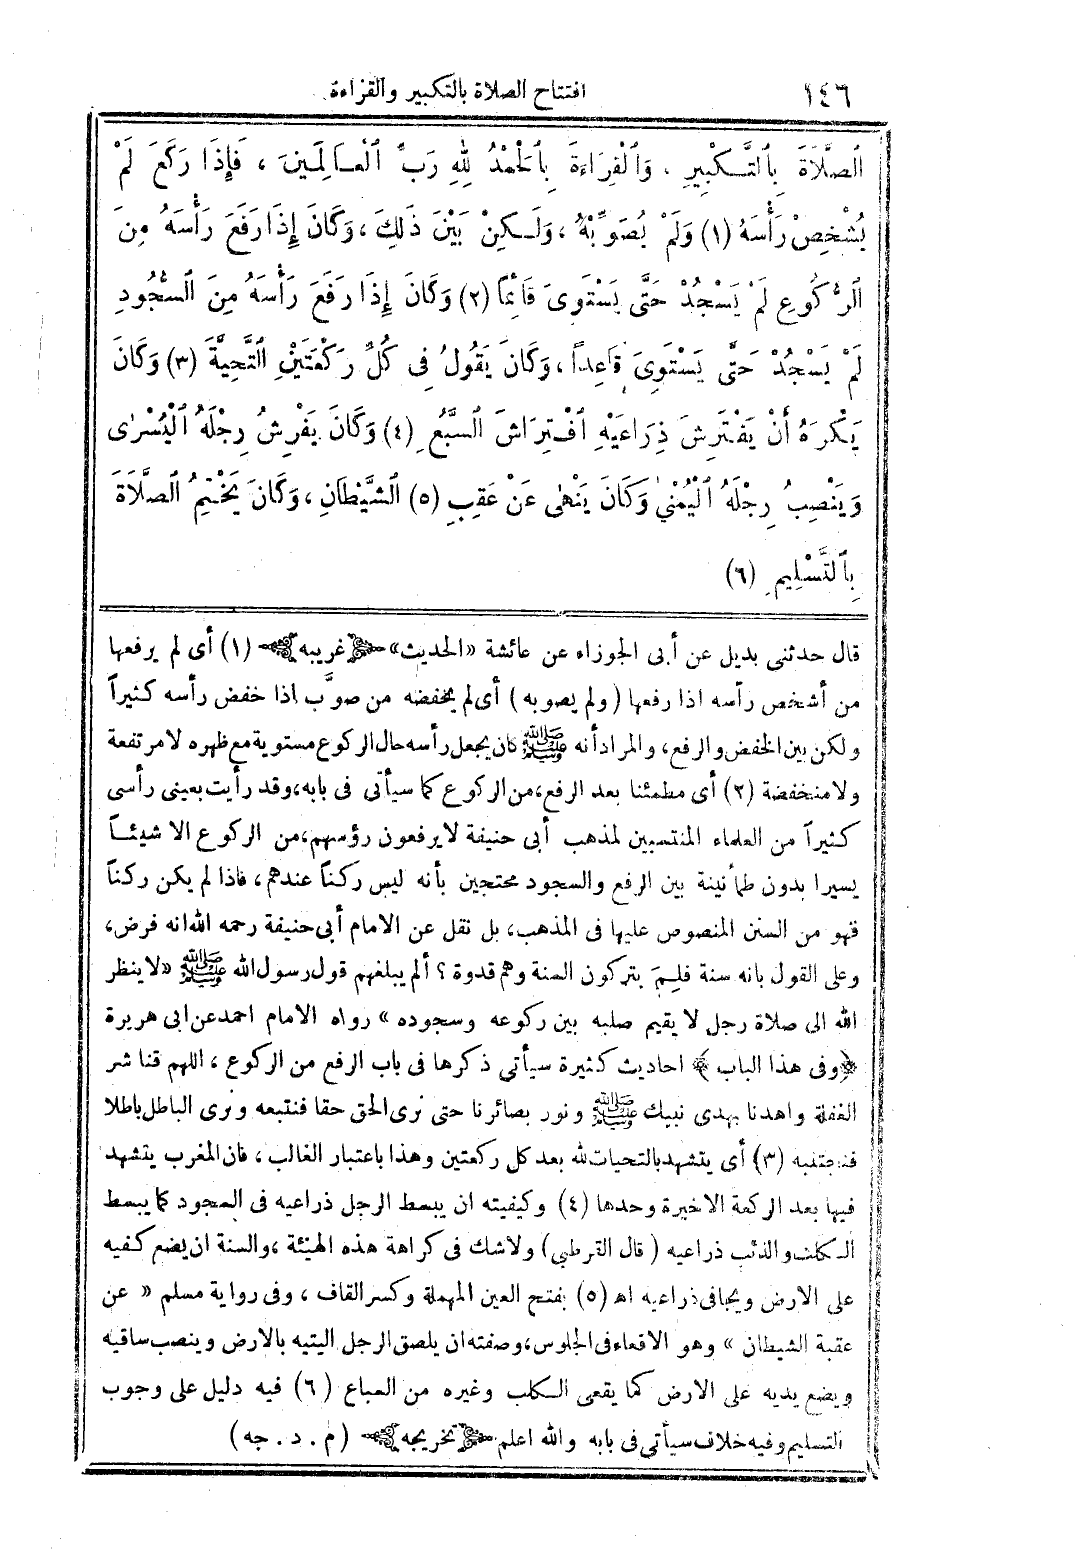 ١٤٦ افتتاح الصلاة بالتكبير والقراءة
الصَّلَاةَ بِالتَّكْبِيرِ ، وَالْقِرَاءَةَ بِالْحَمْدُ لِلّٰهِ رَبِّ الْعَالَمِينَ ، فَإِذَا رَكَعَ لَمْ
يُشْخِصْ رَأْسَهُ (١) وَلَمْ يُصَوِّبْهُ ، وَلَكِنْ بَيْنَ ذَلِكَ ، وَكَانَ إِذَا رَفَعَ رَأْسَهُ مِنَ
الرُّكُوعِ لَمْ يَسْجُدْ حَتَّى يَسْتَوِىَ قَائِمًا (٢) وَكَانَ إِذَا رَفَعَ رَأْسَهُ مِنَ السُّجُودِ
لَمْ يَسْجُدْ حَتَّى يَسْتَوِىَ قَاعِداً ، وَكَانَ يَقُولُ فِى كُلِّ رَكْعَتَيْنِ التَّحِيَّةَ (٣) وَكَانَ
يَكْرَهُ أَنْ يَفْتَرِشَ ذِرَاعَيْهِ افْتِرَاشَ السَّبُعِ (٤) وَكَانَ يَفْرِشُ رِجْلَهُ الْيُسْرَى
وَيَنْصِبُ رِجْلَهُ الْيُمْنَى وَكَانَ يَنْهَى عَنْ عَقِبِ (٥) الشَّيْطَانِ ، وَكَانَ يَخْتِمُ الصَّلَاةَ
بِالتَّسْلِيمِ (٦)
قال حدثنى بديل عن أبى الجوزاء عن عائشة «الحديث» ﴿غريبه﴾ (١) أى لم يرفعها
من أشخص رأسه اذا رفعها ( ولم يصوبه ) أى لم يخفضه من صوَّب اذا خفض رأسه كثيراً
ولكن بين الخفض والرفع، والمراد أنه ﷺ كان يجعل رأسه حال الركوع مستوية مع ظهره لا مرتفعة
ولا منخفضة (٢) أى مطمئنا بعد الرفع، من الركوع كما سيأتى فى بابه، وقد رأيت بعينى رأسى
كثيراً من العلماء المنتسبين لمذهب أبى حنيفة لا يرفعون رؤسهم، من الركوع الا شيئاً
يسيرا بدون طمأنينة بين الرفع والسجود محتجين بأنه ليس ركناً عندهم، فاذا لم يكن ركناً
فهو من السنن المنصوص عليها فى المذهب، بل نقل عن الامام أبى حنيفة رحمه الله انه فرض،
وعلى القول بانه سنة فلِمَ يتركون السنة وهم قدوة ؟ ألم يبلغهم قول رسول الله ﷺ «لا ينظر
الله الى صلاة رجل لا يقيم صلبه بين ركوعه وسجوده » رواه الامام احمد عن ابى هريرة
﴿وفى هذا الباب﴾ احاديث كثيرة سيأتي ذكرها فى باب الرفع من الركوع ، اللهم قنا شر
الغفلة واهدنا بهدى نبيك ﷺ ونور بصائرنا حتى نرى الحق حقا فنتبعه ونرى الباطل باطلا
فنجتنبه (٣) أى يتشهد بالتحيات لله بعد كل ركعتين وهذا باعتبار الغالب ، فان المغرب يتشهد
فيها بعد الركعة الاخيرة وحدها (٤) وكيفيته ان يبسط الرجل ذراعيه فى السجود كما يبسط
الكلب والذئب ذراعيه ( قال القرطبى ) ولا شك فى كراهة هذه الهيئة ، والسنة ان يضع كفيه
على الارض ويجافى ذراعيه اه (٥) بفتح العين المهملة وكسر القاف ، وفى رواية مسلم « عن
عقبة الشيطان » وهو الاقعاء فى الجلوس، وصفته ان يلصق الرجل اليتيه بالارض وينصب ساقيه
ويضع يديه على الارض كما يقعى الكلب وغيره من السباع (٦) فيه دليل على وجوب
التسليم وفيه خلاف سيأتى فى بابه والله اعلم ﴿تخريجه﴾ (م . د . جه)